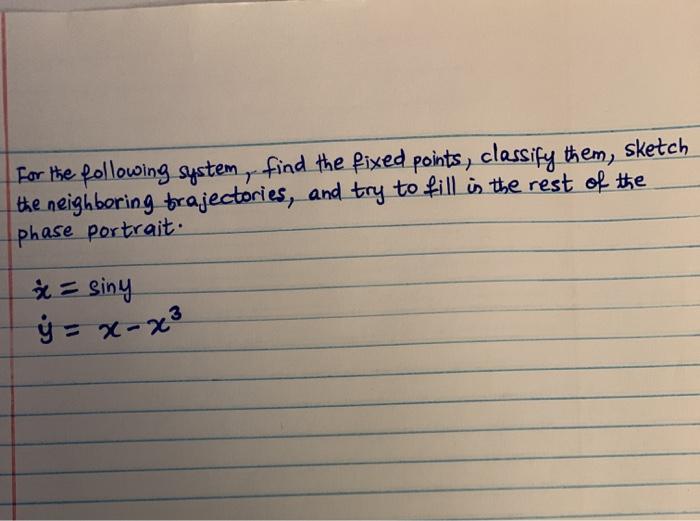 For the following system, find the fixed points, classify them, sketch
the neighboring trajectories, and try to fill in the rest of the
phase portrait.
ẋ = siny
ẏ = x - x³